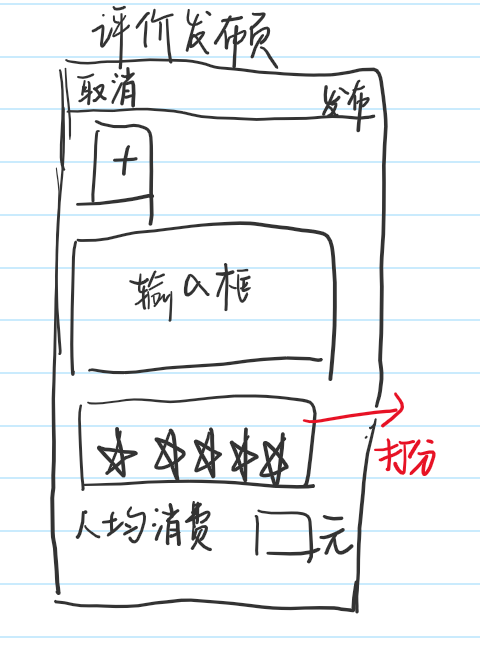 评价发布页
取消 发布
+
输入框
打分
人均消费 元